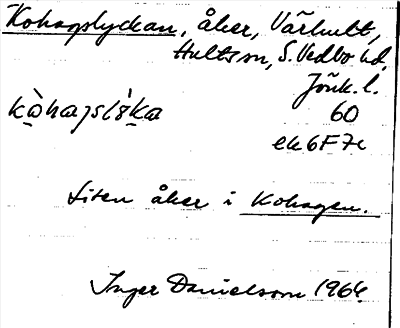 Kohagslyckan, åker, Värhult,
Hults sn, S. Vedbo hd,
Jönk. l.
kò̱hagslʹy̱ka
60
ek 6F7c
Liten åker i Kohagen.
Inger Danielsson 1964